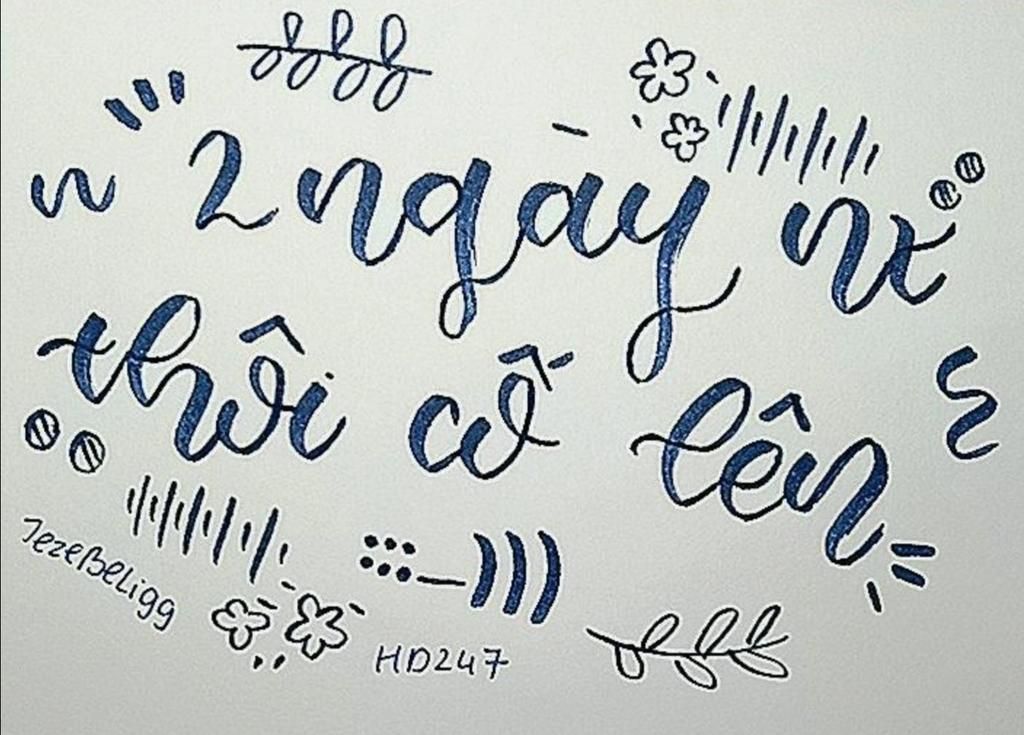 2 ngày nx
thôi cố lên
JezeBeligg
HD247